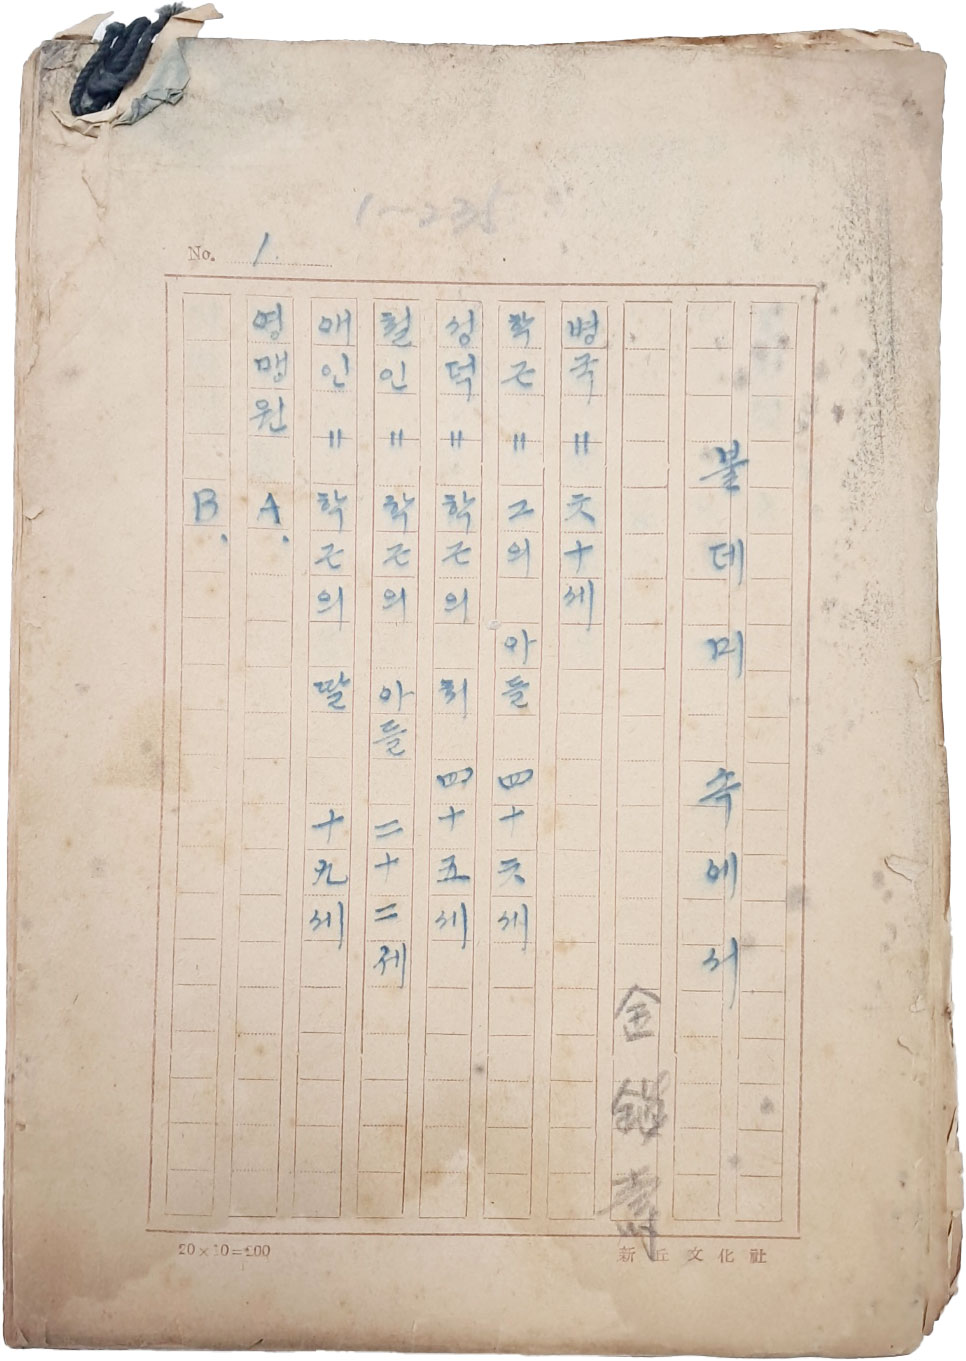 1~235
No. 1.
불데미 속에서
金鎭壽
병국 〃 六十세
학근 〃 그의 아들 四十六세
성덕 〃 학근의 처 四十五세
철인 〃 학근의 아들 二十二세
애인 〃 학근의 딸 十九세
영맹원 A.
B.
20×10=200
新丘文化社